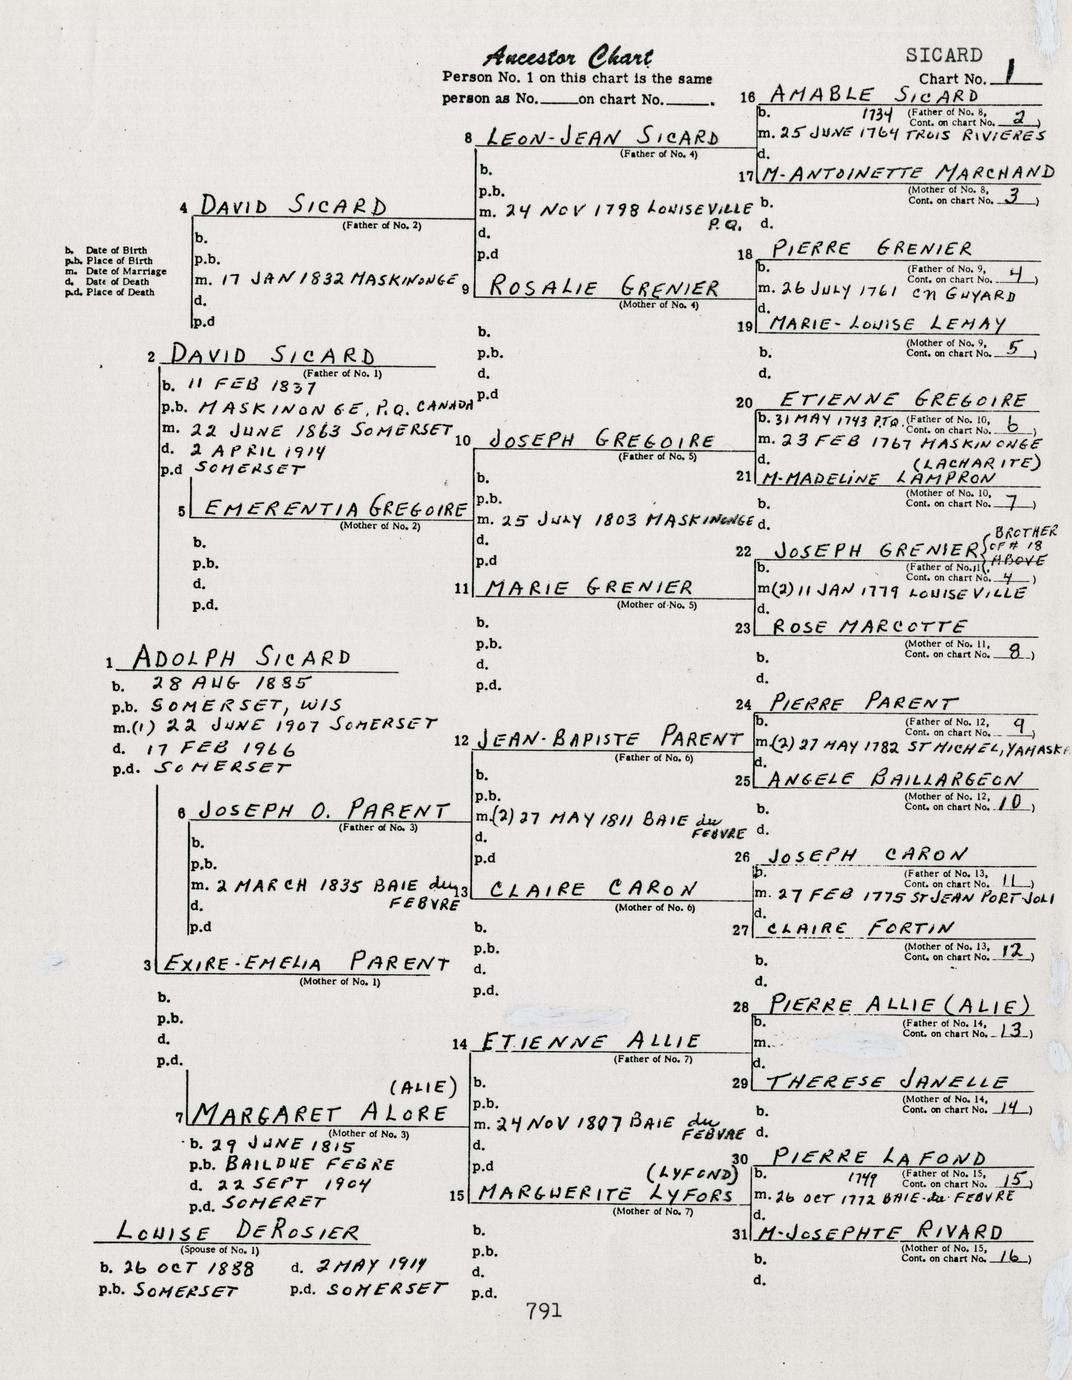 Ancestor Chart
Person No. 1 on this chart is the same
person as No.____on chart No.____.
SICARD
Chart No. 1
b. Date of Birth
p.b. Place of Birth
m. Date of Marriage
d. Date of Death
p.d. Place of Death
1 ADOLPH SICARD
b. 28 AUG 1885
p.b. SOMERSET, WIS
m.(1) 22 JUNE 1907 SOMERSET
d. 17 FEB 1966
p.d. SOMERSET
LOUISE DEROSIER
(Spouse of No. 1)
b. 26 OCT 1888 d. 2 MAY 1914
p.b. SOMERSET p.d. SOMERSET
2 DAVID SICARD
(Father of No. 1)
b. 11 FEB 1837
p.b. MASKINONGE, P.Q. CANADA
m. 22 JUNE 1863 SOMERSET
d. 2 APRIL 1914
p.d SOMERSET
3 EXIRE-EMELIA PARENT
(Mother of No. 1)
b.
p.b.
d.
p.d.
4 DAVID SICARD
(Father of No. 2)
b.
p.b.
m. 17 JAN 1832 MASKINONGE
d.
p.d
5 EMERENTIA GREGOIRE
(Mother of No. 2)
b.
p.b.
d.
p.d.
6 JOSEPH O. PARENT
(Father of No. 3)
b.
p.b.
m. 2 MARCH 1835 BAIE du
FEBVRE
d.
p.d
(ALIE)
7 MARGARET ALORE
(Mother of No. 3)
b. 29 JUNE 1815
p.b. BAILDUE FEBRE
d. 22 SEPT 1904
p.d. SOMERET
8 LEON-JEAN SICARD
(Father of No. 4)
b.
p.b.
m. 24 NOV 1798 LOUISEVILLE
P.Q.
d.
p.d
9 ROSALIE GRENIER
(Mother of No. 4)
b.
p.b.
d.
p.d
10 JOSEPH GREGOIRE
(Father of No. 5)
b.
p.b.
m. 25 JULY 1803 MASKINONGE
d.
p.d
11 MARIE GRENIER
(Mother of No. 5)
b.
p.b.
d.
p.d.
12 JEAN-BAPISTE PARENT
(Father of No. 6)
b.
p.b.
m.(2) 27 MAY 1811 BAIE du
FEBVRE
d.
p.d
13 CLAIRE CARON
(Mother of No. 6)
b.
p.b.
d.
p.d.
14 ETIENNE ALLIE
(Father of No. 7)
b.
p.b.
m. 24 NOV 1807 BAIE du
FEBVRE
d.
p.d
(LYFOND)
15 MARGUERITE LYFORS
(Mother of No. 7)
b.
p.b.
d.
p.d.
16 AMABLE SICARD
b. 1734 (Father of No. 8,
Cont. on chart No. 2)
m. 25 JUNE 1764 TROIS RIVIERES
d.
17 M-ANTOINETTE MARCHAND
(Mother of No. 8,
Cont. on chart No. 3)
b.
d.
18 PIERRE GRENIER
b. (Father of No. 9,
Cont. on chart No. 4)
m. 26 JULY 1761 CN GUYARD
d.
19 MARIE-LOUISE LEMAY
(Mother of No. 9,
Cont. on chart No. 5)
b.
d.
20 ETIENNE GREGOIRE
b. 31 MAY 1743 (Father of No. 10,
Cont. on chart No. 6)
m. 23 FEB 1767 MASKINONGE
d. (LACHARITE)
21 M-MADELINE LAMPRON
(Mother of No. 10,
Cont. on chart No. 7)
b.
d.
22 JOSEPH GRENIER { BROTHER
OF # 18
ABOVE
b. (Father of No. 11,
Cont. on chart No. 4)
m(2) 11 JAN 1779 LOUISEVILLE
d.
23 ROSE MARCOTTE
(Mother of No. 11,
Cont. on chart No. 8)
b.
d.
24 PIERRE PARENT
b. (Father of No. 12,
Cont. on chart No. 9)
m.(2) 27 MAY 1782 ST MICHEL, YAMASK
d.
25 ANGELE BAILLARGEON
(Mother of No. 12,
Cont. on chart No. 10)
b.
d.
26 JOSEPH CARON
b. (Father of No. 13,
Cont. on chart No. 11)
m. 27 FEB 1775 ST JEAN PORT-JOLI
d.
27 CLAIRE FORTIN
(Mother of No. 13,
Cont. on chart No. 12)
b.
d.
28 PIERRE ALLIE (ALIE)
b. (Father of No. 14,
Cont. on chart No. 13)
m.
d.
29 THERESE JANELLE
(Mother of No. 14,
Cont. on chart No. 14)
b.
d.
30 PIERRE LAFOND
b. 1749 (Father of No. 15,
Cont. on chart No. 15)
m. 26 OCT 1772 BAIE-du-FEBVRE
d.
31 M-JOSEPHTE RIVARD
(Mother of No. 15,
Cont. on chart No. 16)
b.
d.
791